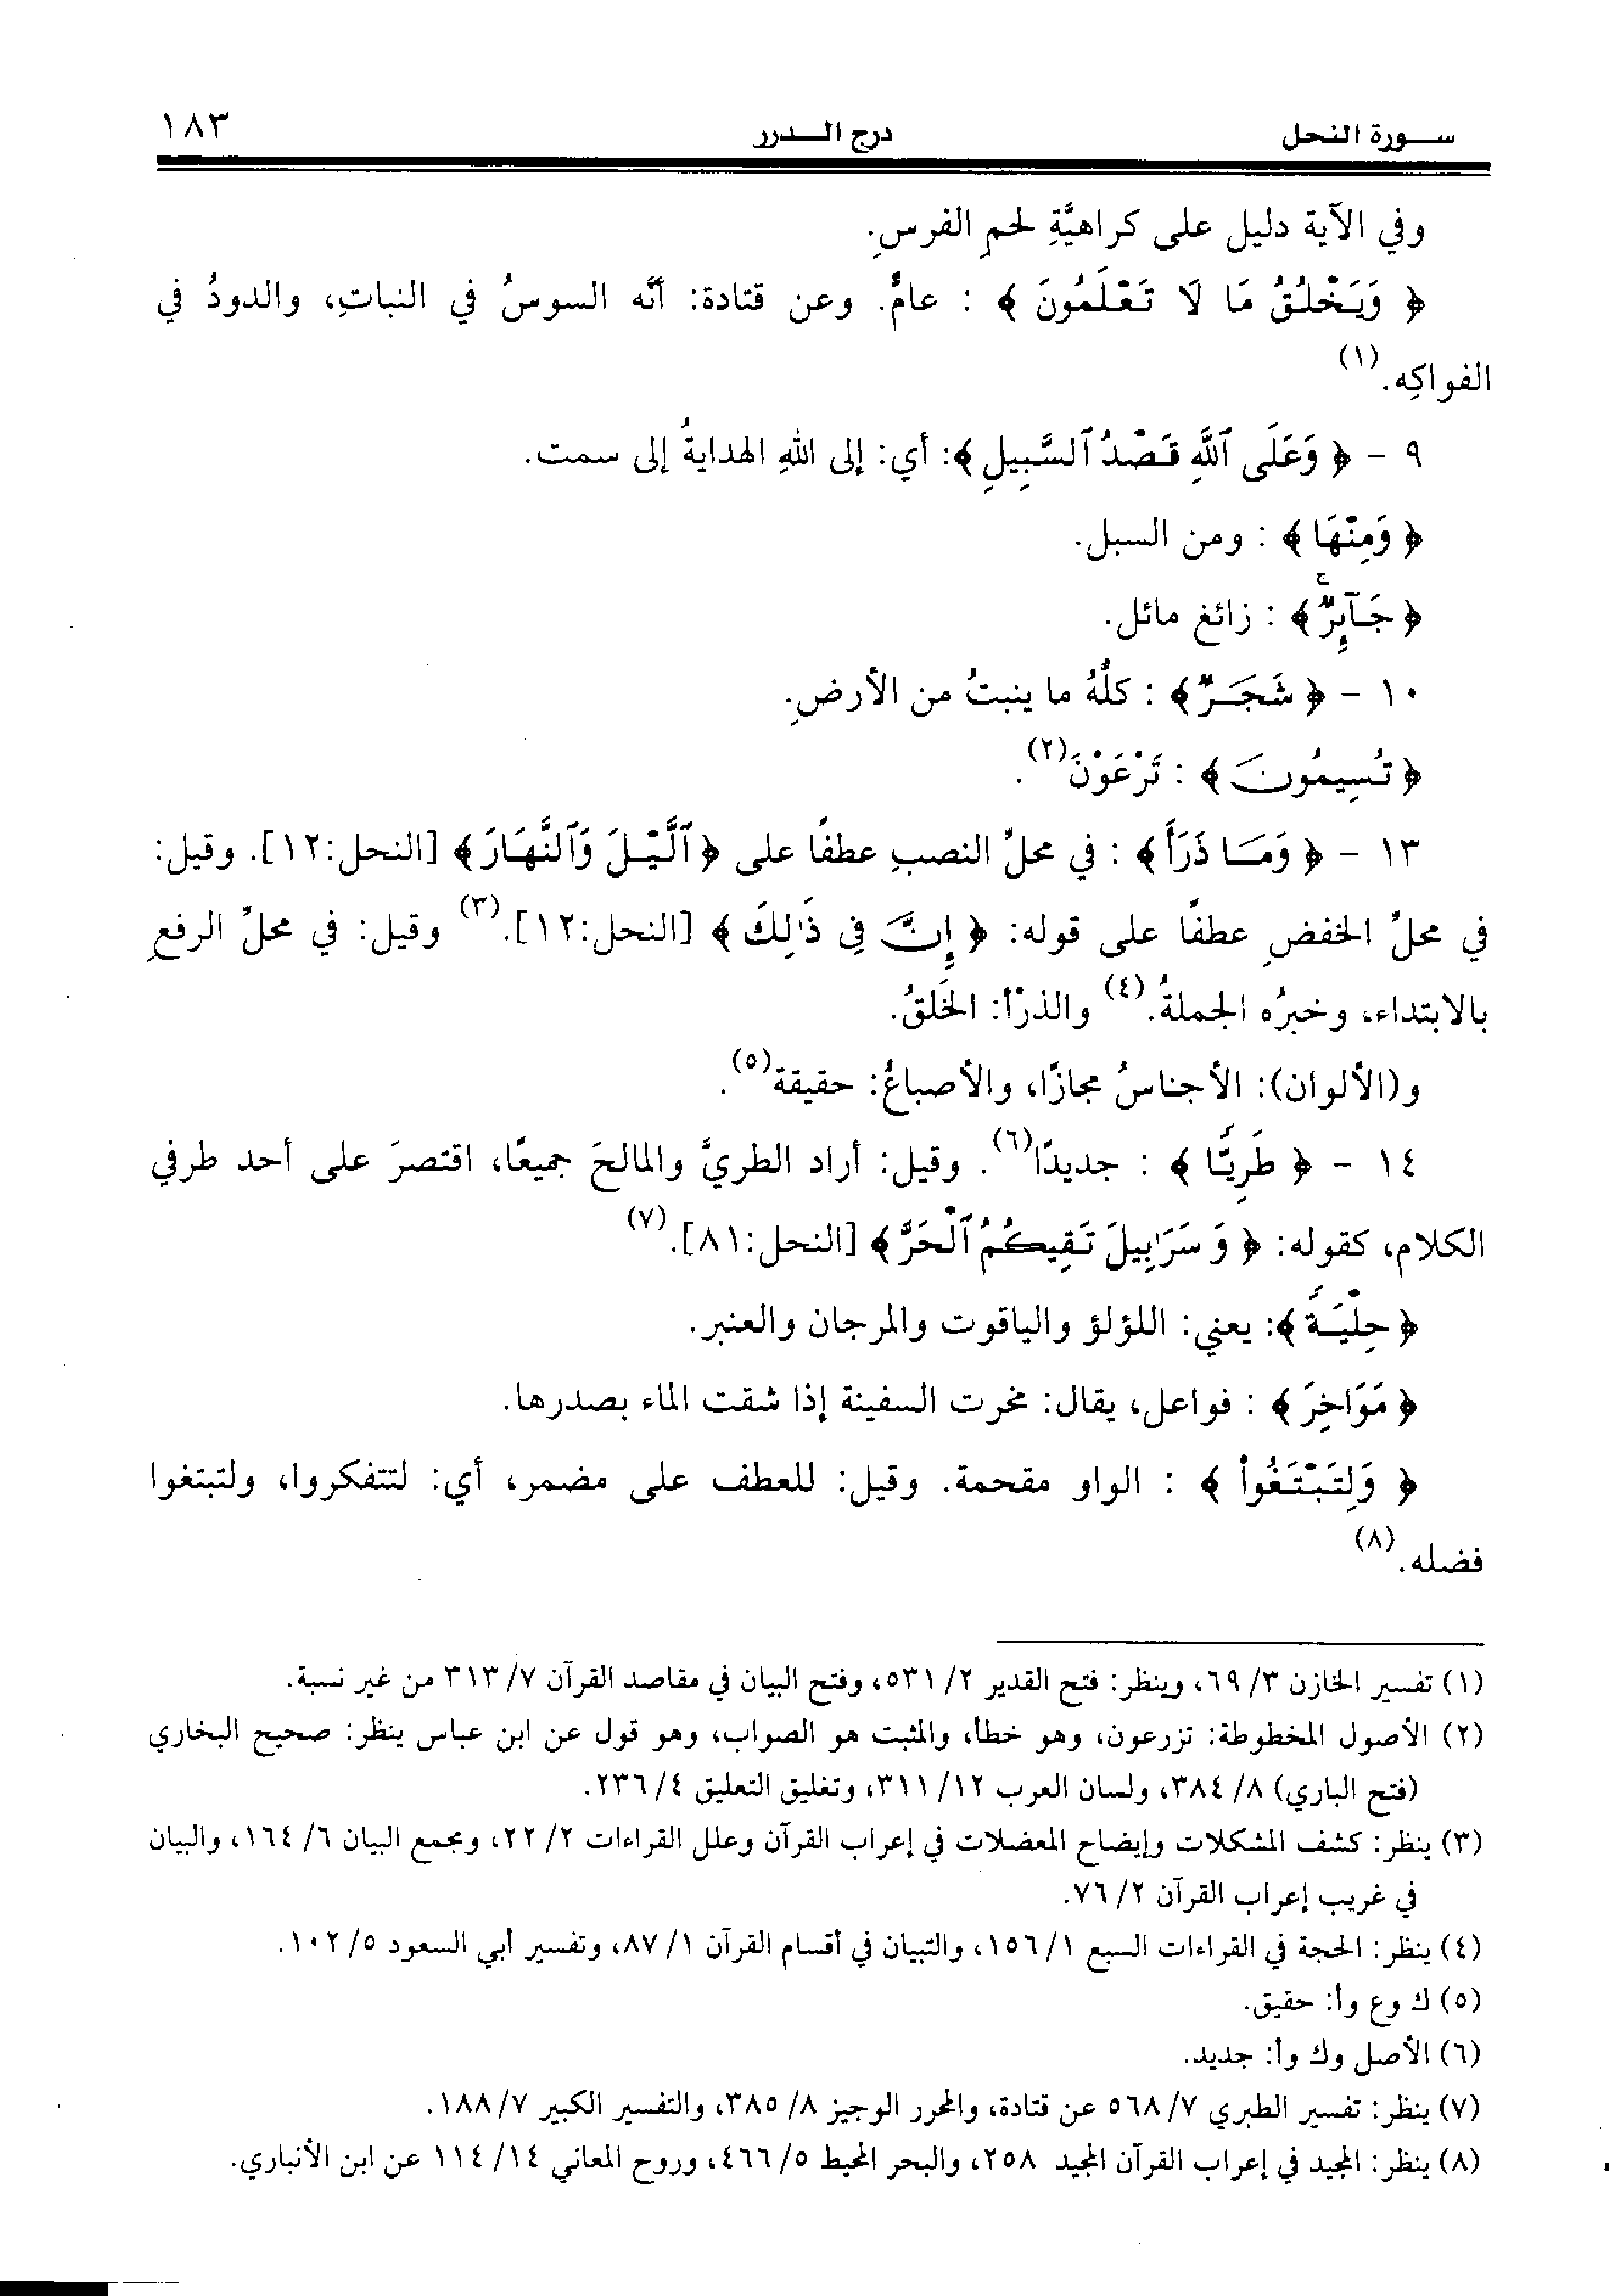 سورة النحل درج الدرر ١٨٣
وفي الآية دليل على كراهيَّةِ لحمِ الفرسِ.
﴿ وَيَخْلُقُ مَا لَا تَعْلَمُونَ ﴾ : عامٌّ. وعن قتادة: أنَّه السوسُ في النباتِ، والدودُ في
الفواكِه.(١)
٩ - ﴿ وَعَلَى ٱللَّهِ قَصْدُ ٱلسَّبِيلِ ﴾: أي: إلى اللهِ الهدايةُ إلى سمت.
﴿ وَمِنْهَا ﴾ : ومن السبل.
﴿ جَآئِرٌۚ ﴾ : زائغ مائل.
١٠ - ﴿ شَجَرٌ ﴾ : كلُّهُ ما ينبتُ من الأرضِ.
﴿ تُسِيمُونَ ﴾ : تَرْعَوْنَ(٢).
١٣ - ﴿ وَمَا ذَرَأَ ﴾ : في محلِّ النصبِ عطفًا على ﴿ ٱلَّيْلَ وَٱلنَّهَارَ ﴾ [النحل:١٢]. وقيل:
في محلِّ الخفضِ عطفًا على قوله: ﴿ إِنَّ فِي ذَٰلِكَ ﴾ [النحل:١٢].(٣) وقيل: في محلِّ الرفعِ
بالابتداء، وخبرُه الجملةُ.(٤) والذرْأُ: الخَلقُ.
و(الألوان): الأجناسُ مجازًا، والأصباغُ: حقيقة(٥).
١٤ - ﴿ طَرِيًّا ﴾ : جديدًا(٦). وقيل: أراد الطريَّ والمالحَ جميعًا، اقتصرَ على أحد طرفي
الكلام، كقوله: ﴿ وَ سَرَٰبِيلَ تَقِيكُمُ ٱلْحَرَّ ﴾ [النحل:٨١].(٧)
﴿ حِلْيَةً ﴾: يعني: اللؤلؤ والياقوت والمرجان والعنبر.
﴿ مَوَاخِرَ ﴾ : فواعل، يقال: مخرت السفينة إذا شقت الماء بصدرها.
﴿ وَلِتَبْتَغُواْ ﴾ : الواو مقحمة. وقيل: للعطف على مضمر، أي: لتتفكروا، ولتبتغوا
فضله.(٨)
(١) تفسير الخازن ٣/ ٦٩، وينظر: فتح القدير ٢/ ٥٣١، وفتح البيان في مقاصد القرآن ٧/ ٣١٣ من غير نسبة.
(٢) الأصول المخطوطة: تزرعون، وهو خطأ، والمثبت هو الصواب، وهو قول عن ابن عباس ينظر: صحيح البخاري
(فتح الباري) ٨/ ٣٨٤، ولسان العرب ١٢/ ٣١١، وتغليق التعليق ٤/ ٢٣٦.
(٣) ينظر: كشف المشكلات وإيضاح المعضلات في إعراب القرآن وعلل القراءات ٢/ ٢٢، ومجمع البيان ٦/ ١٦٤، والبيان
في غريب إعراب القرآن ٢/ ٧٦.
(٤) ينظر: الحجة في القراءات السبع ١/ ١٥٦، والتبيان في أقسام القرآن ١/ ٨٧، وتفسير أبي السعود ٥/ ١٠٢.
(٥) ك وع وأ: حقيق.
(٦) الأصل وك وأ: جديد.
(٧) ينظر: تفسير الطبري ٧/ ٥٦٨ عن قتادة، والمحرر الوجيز ٨/ ٣٨٥، والتفسير الكبير ٧/ ١٨٨.
(٨) ينظر: المجيد في إعراب القرآن المجيد ٢٥٨، والبحر المحيط ٥/ ٤٦٦، وروح المعاني ١٤/ ١١٤ عن ابن الأنباري.